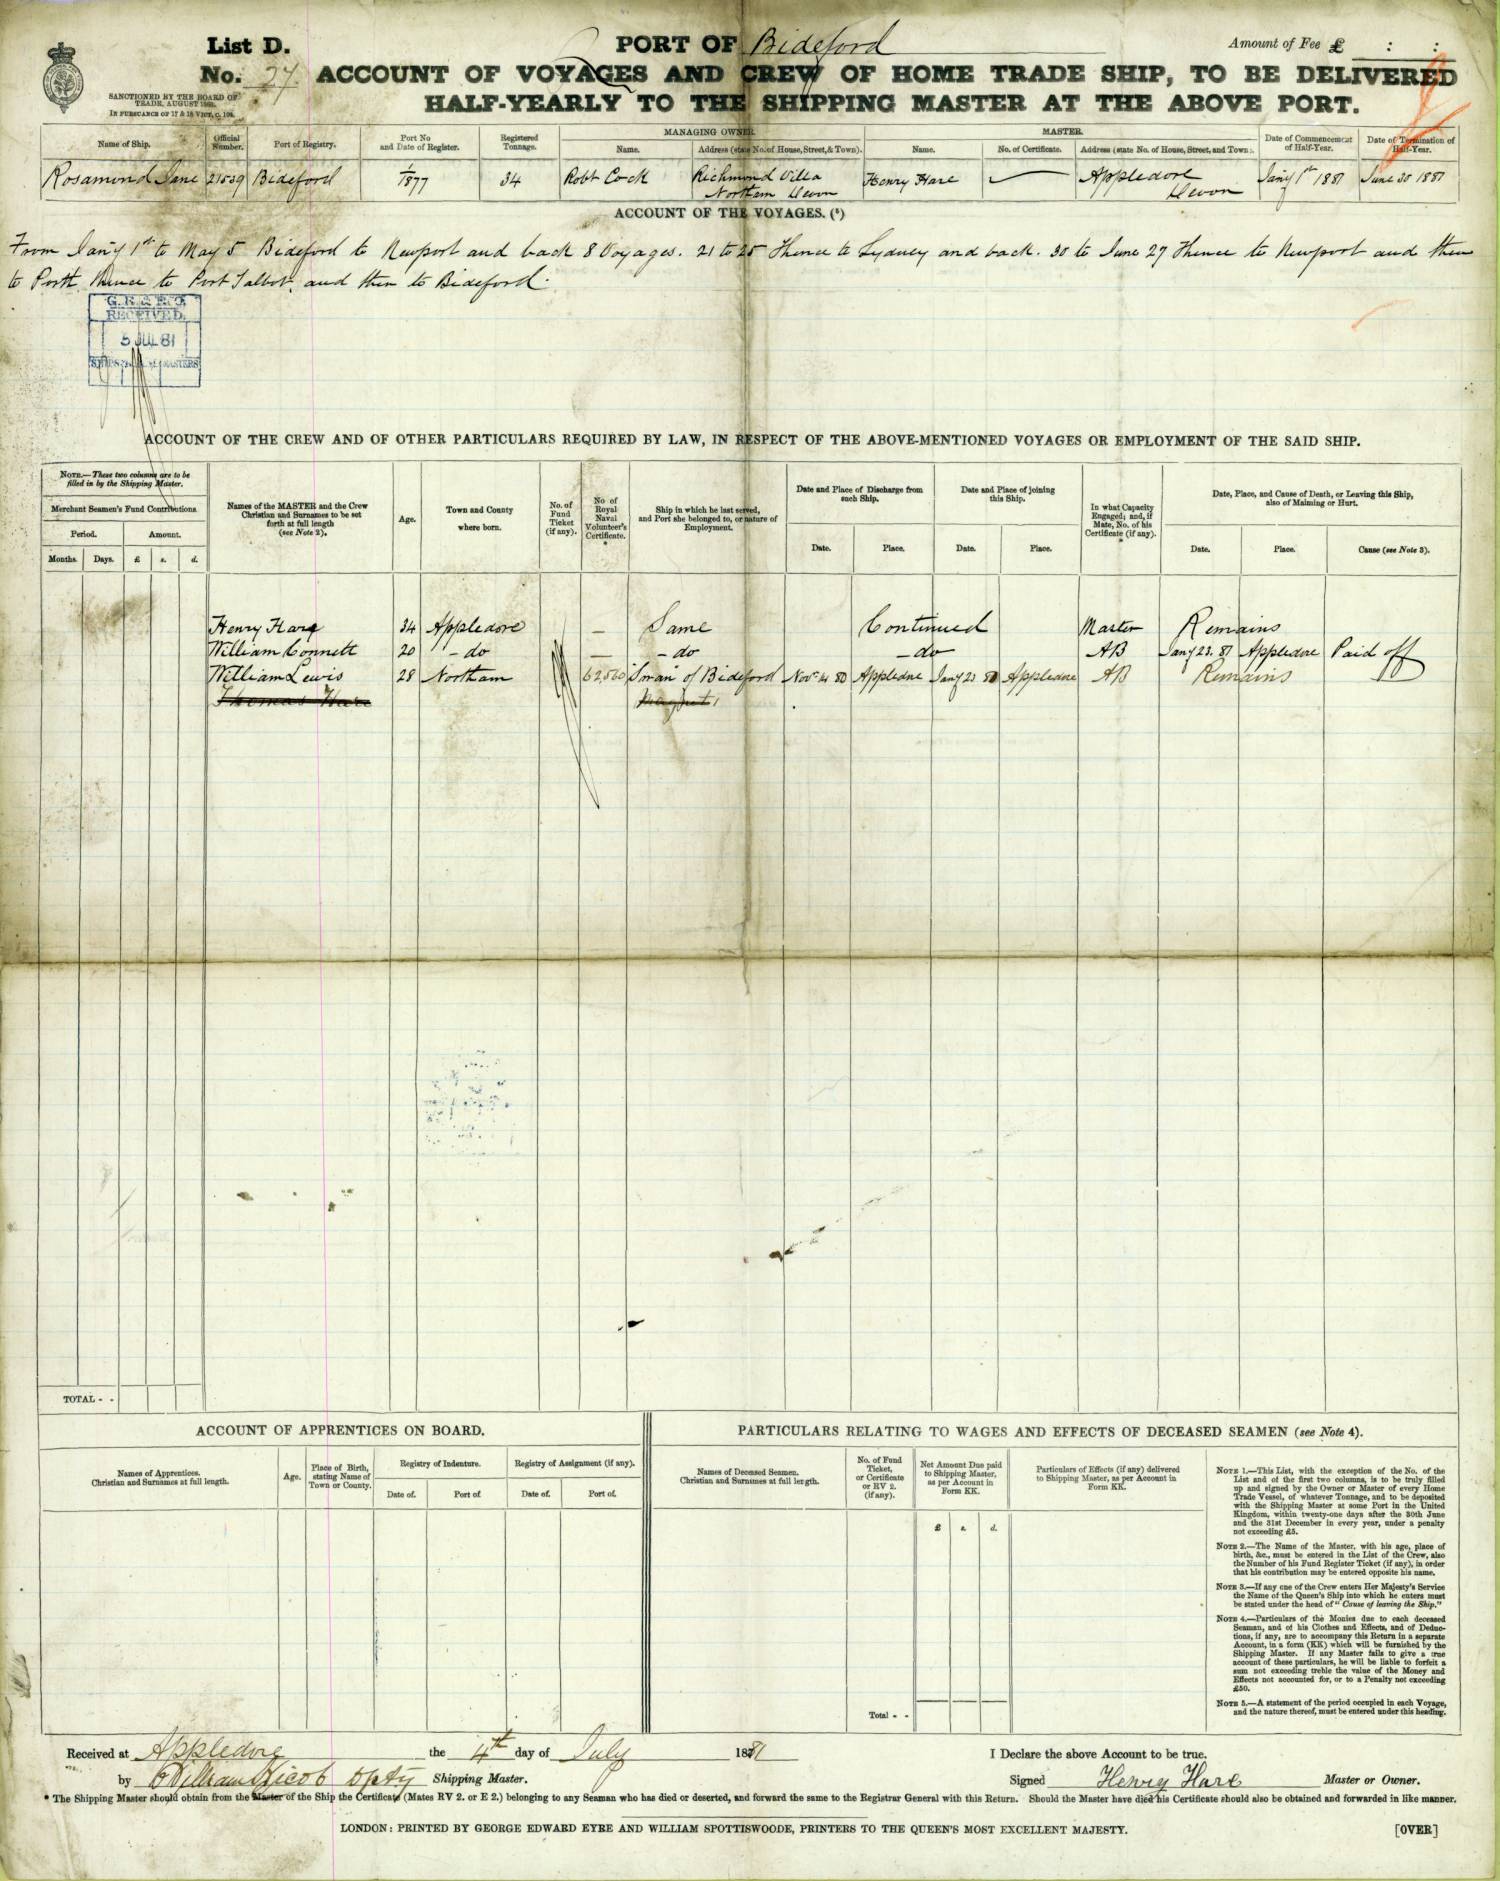 List D.
PORT OF Bideford
Amount of Fee £ : :
No. 27. ACCOUNT OF VOYAGES AND CREW OF HOME TRADE SHIP, TO BE DELIVERED
HALF-YEARLY TO THE SHIPPING MASTER AT THE ABOVE PORT.
SANCTIONED BY THE BOARD OF
TRADE, AUGUST
IN PURSUANCE OF 17 & 18 VICT, C. 104.
Name of Ship.
Official Number.
Port of Registry.
Port No and Date of Register.
Registered Tonnage.
MANAGING OWNER.
Name.
Address (state No. of House, Street, & Town).
MASTER.
Name.
No. of Certificate.
Address (state No. of House, Street, and Town).
Date of Commencement of Half-Year.
Date of Termination of Half-Year.
Rosamond Jane
21539
Bideford
1/1877
34
Robt Cock
Richmond Villa
Northam Devon
Henry Hare
Appledore
Devon
Jany 1st 1881
June 30 1881
ACCOUNT OF THE VOYAGES. (5)
From Jany 1st to May 5 Bideford to Newport and back 8 Voyages. 21 to 25 Thence to Lydney and back. 30 to June 27 Thence to Newport and then
to Porth thence to Port Talbot, and then to Bideford.
RECEIVED.
5 JUL 81
ACCOUNT OF THE CREW AND OF OTHER PARTICULARS REQUIRED BY LAW, IN RESPECT OF THE ABOVE-MENTIONED VOYAGES OR EMPLOYMENT OF THE SAID SHIP.
NOTE.—These two columns are to be
filled in by the Shipping Master.
Merchant Seamen's Fund Contributions.
Period.
Amount.
Months.
Days.
£
s.
d.
Names of the MASTER and the Crew
Christian and Surnames to be set
forth at full length
(see Note 2).
Age.
Town and County
where born.
No. of
Fund
Ticket
(if any).
No of
Royal
Naval
Volunteer's
Certificate.
*
Ship in which he last served,
and Port she belonged to, or nature of
Employment.
Date and Place of Discharge from
such Ship.
Date.
Place.
Date and Place of joining
this Ship.
Date.
Place.
In what Capacity
Engaged; and, if
Mate, No. of his
Certificate (if any).
*
Date, Place, and Cause of Death, or Leaving this Ship,
also of Maiming or Hurt.
Date.
Place.
Cause (see Note 3).
Henry Hare 34 Appledore — Same Continued Master Remains
William Connett 20 - do — - do - do AB Jany 23. 81 Appledore Paid off
William Lewis 28 Northam 62,560 Swan of Bideford Novr 14 80 Appledore Jany 23 81 Appledore AB Remains
Thomas Hare
TOTAL - -
ACCOUNT OF APPRENTICES ON BOARD.
Names of Apprentices.
Christian and Surnames at full length.
Age.
Place of Birth,
stating Name of
Town or County.
Registry of Indenture.
Date of.
Port of.
Registry of Assignment (if any).
Date of.
Port of.
PARTICULARS RELATING TO WAGES AND EFFECTS OF DECEASED SEAMEN (see Note 4).
Names of Deceased Seamen.
Christian and Surnames at full length.
No. of Fund
Ticket,
or Certificate
or RV 2.
(if any).
Net Amount Due paid
to Shipping Master,
as per Account in
Form KK.
£
s.
d.
Particulars of Effects (if any) delivered
to Shipping Master, as per Account in
Form KK.
Total - -
NOTE 1.—This List, with the exception of the No. of the
List and of the first two columns, is to be truly filled
up and signed by the Owner or Master of every Home
Trade Vessel, of whatever Tonnage, and to be deposited
with the Shipping Master at some Port in the United
Kingdom, within twenty-one days after the 30th June
and the 31st December in every year, under a penalty
not exceeding £5.
NOTE 2.—The Name of the Master, with his age, place of
birth, &c., must be entered in the List of the Crew, also
the Number of his Fund Register Ticket (if any), in order
that his contribution may be entered opposite his name.
NOTE 3.—If any one of the Crew enters Her Majesty's Service
the Name of the Queen's Ship into which he enters must
be stated under the head of "Cause of leaving the Ship."
NOTE 4.—Particulars of the Monies due to each deceased
Seaman, and of his Clothes and Effects, and of Deduc-
tions, if any, are to accompany this Return in a separate
Account, in a form (KK) which will be furnished by the
Shipping Master. If any Master fails to give a true
account of these particulars, he will be liable to forfeit a
sum not exceeding treble the value of the Money and
Effects not accounted for, or to a Penalty not exceeding
£50.
NOTE 5.—A statement of the period occupied in each Voyage,
and the nature thereof, must be entered under this heading.
Received at Appledore the 4th day of July 1881
by William Jicob Dpty Shipping Master.
I Declare the above Account to be true.
Signed Henry Hare Master or Owner.
* The Shipping Master should obtain from the Master of the Ship the Certificate (Mates RV 2. or E 2.) belonging to any Seaman who has died or deserted, and forward the same to the Registrar General with this Return. Should the Master have died his Certificate should also be obtained and forwarded in like manner.
LONDON: PRINTED BY GEORGE EDWARD EYRE AND WILLIAM SPOTTISWOODE, PRINTERS TO THE QUEEN'S MOST EXCELLENT MAJESTY.
[OVER]